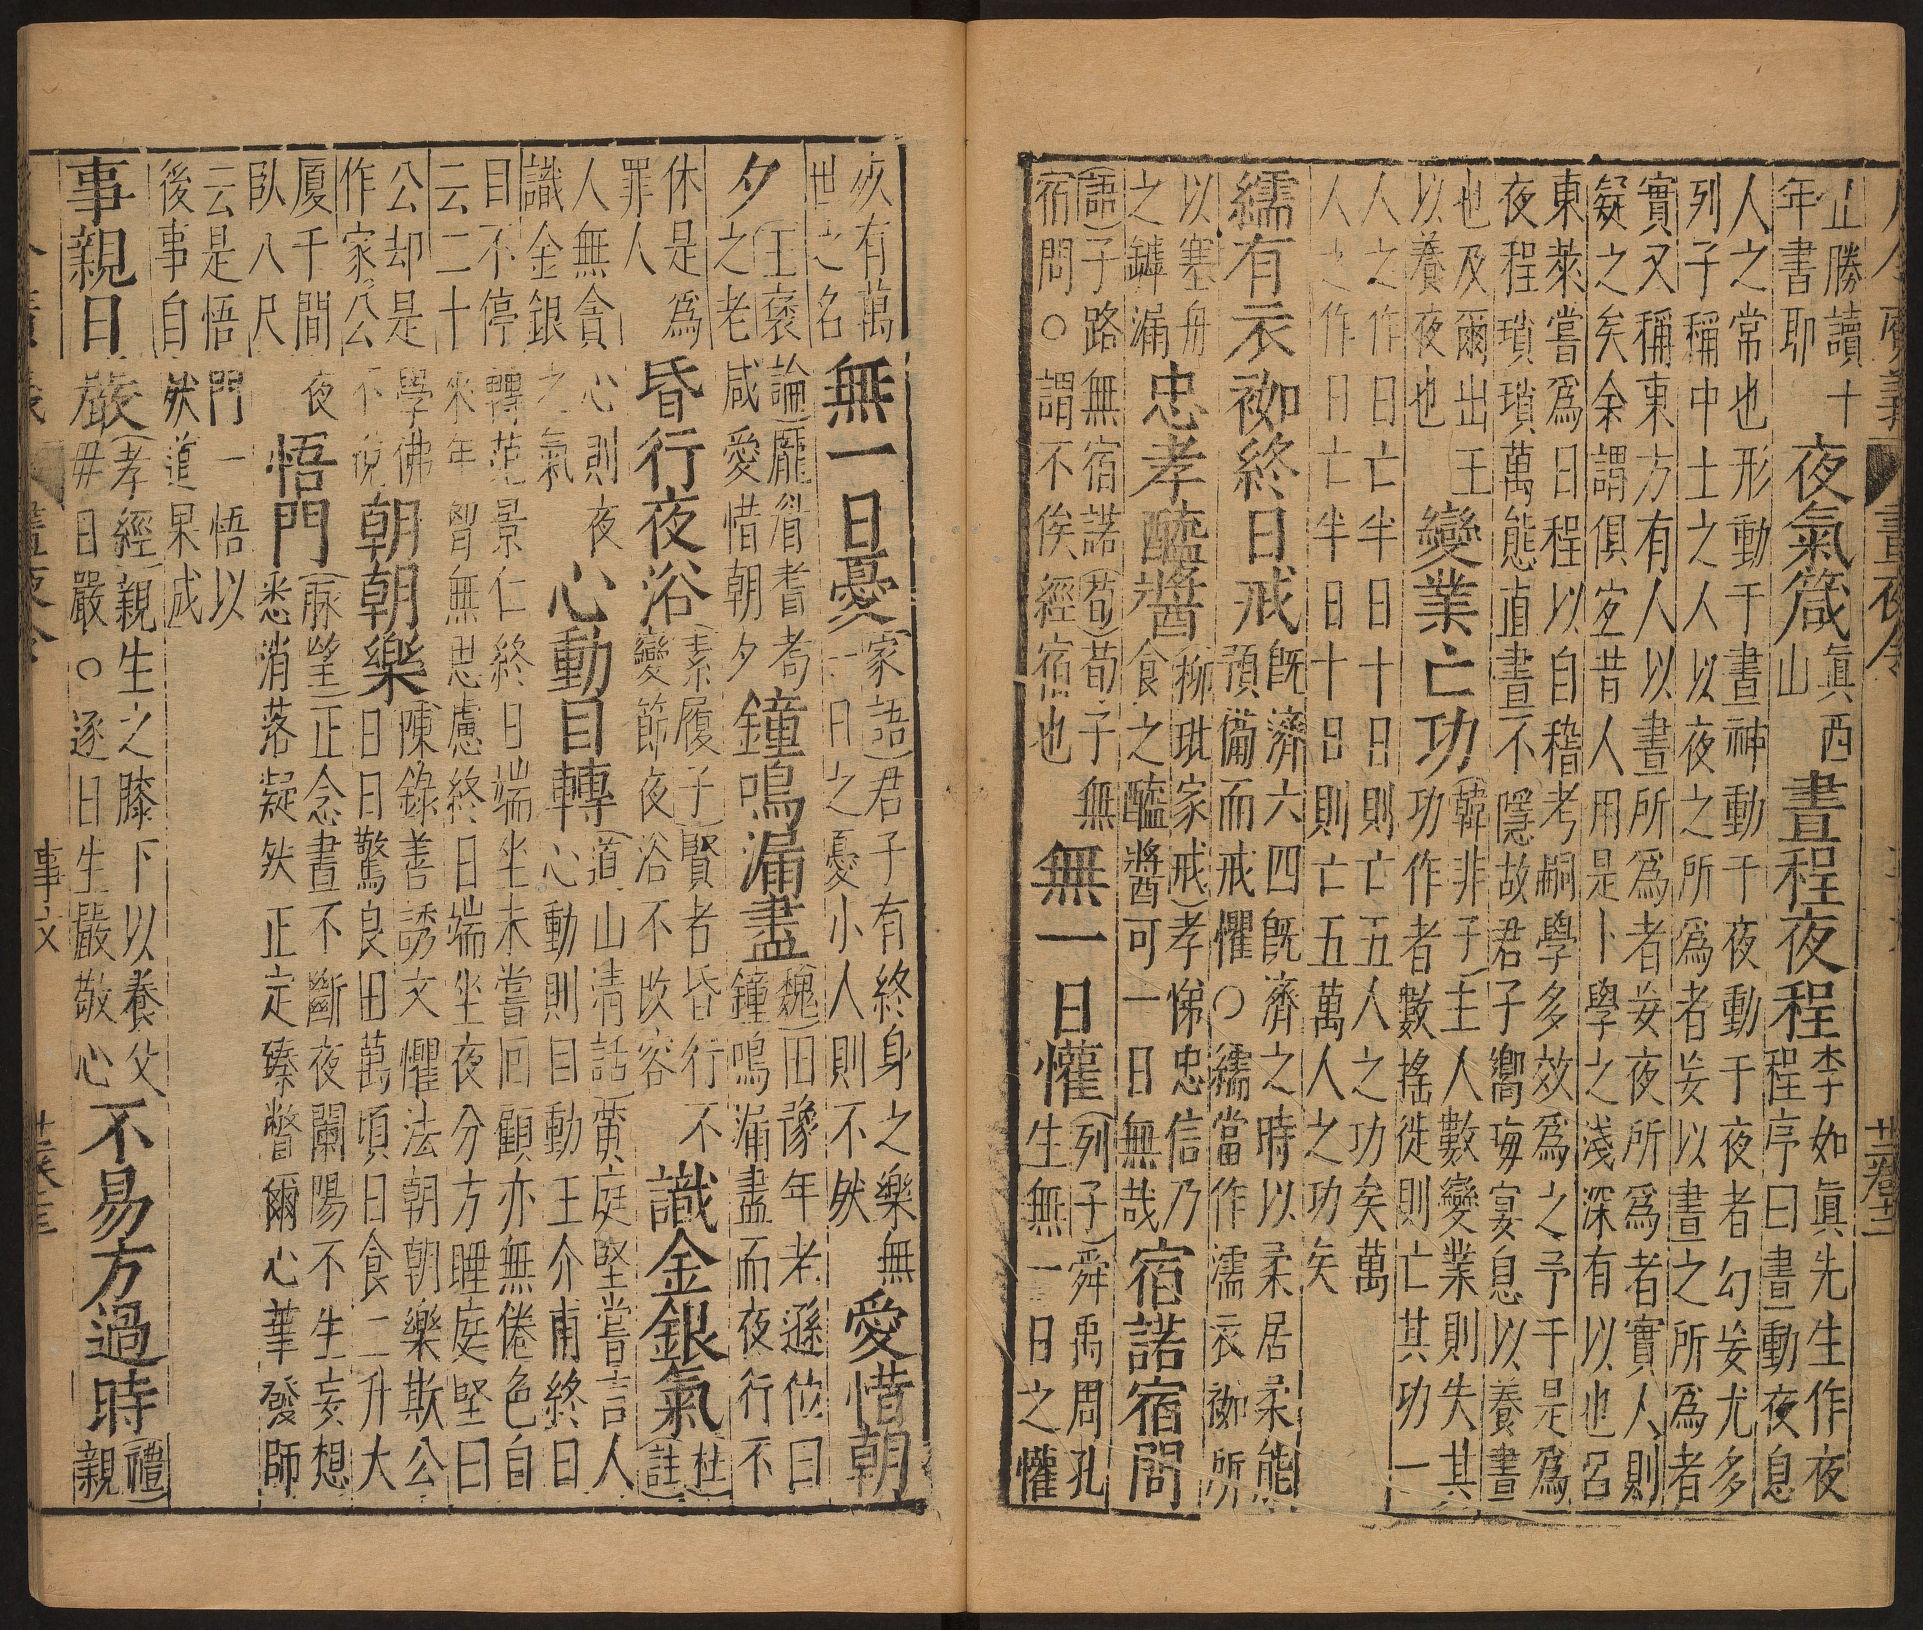 止勝讀十
年書耶
夜氣箴
眞西
山
晝程夜程
李如眞先生作夜
程序曰晝動夜息
人之常也形動于晝神動于夜動于夜者勾妄尤多
列子稱中士之人以夜之所爲者妄以晝之所爲者
實又稱東方有人以晝所爲者妄夜所爲者實人則
疑之矣余謂俱妄昔人用是卜學之淺深有以也呂
東萊嘗爲日程以自稽考嗣學多效爲之予于是爲
夜程瑣瑣萬態直晝不隱故君子嚮晦宴息以養晝
也及爾出王
以養夜也
變業亡功
(韓非子)主人數變業則失其
功作者數搖徙則亡其功一
人之作日亡半日十日則亡五人之功矣萬
人之作日亡半日十日則亡五萬人之功矣
繻有衣袽終日戒
旣濟六四旣濟之時以柔居柔能
預備而戒懼○繻當作濡衣袽所
以塞舟
之罅漏
忠孝醯醬
(柳玭家戒)孝悌忠信乃
食之醯醬可一日無哉
宿諾宿問
(語)子路無宿諾(荀)荀子無
宿問○謂不俟經宿也
無一日懽
(列子)舜禹周孔
生無一日之懽
殁有萬
世之名
無一日憂
(家語)君子有終身之樂無
一日之憂小人則不然
愛惜朝
夕
(王褒論)龎眉耆耇
之老咸愛惜朝夕
鐘鳴漏盡
(魏)田豫年老遜位曰
鐘鳴漏盡而夜行不
休是爲
罪人
昏行夜浴
(素履子)賢者昏行不
變節夜浴不改容
識金銀氣
(杜
註)
人無貪心則夜
識金銀之氣
心動目轉
(道山清話)黄庭堅嘗言人
心動則目動王介甫終日
目不停轉范景仁終日端坐未嘗回顧亦無倦色自
云二十來年胷無思慮終日端坐夜分方睡庭堅曰
公却是學佛
作家公不說
朝朝樂
(陳錄善誘文)懼法朝朝樂欺公
日日驚良田萬頃日食二升大
厦千間夜
臥八尺
悟門
(脉望)正念晝不斷夜闌陽不生妄想
悉消落凝然正定臻瞥爾心華發師
云是悟門一悟以
後事自然道果成
事親日嚴
(孝經)親生之膝下以養父
毋日嚴○逐日生嚴敬心
不易方過時
(禮)
親